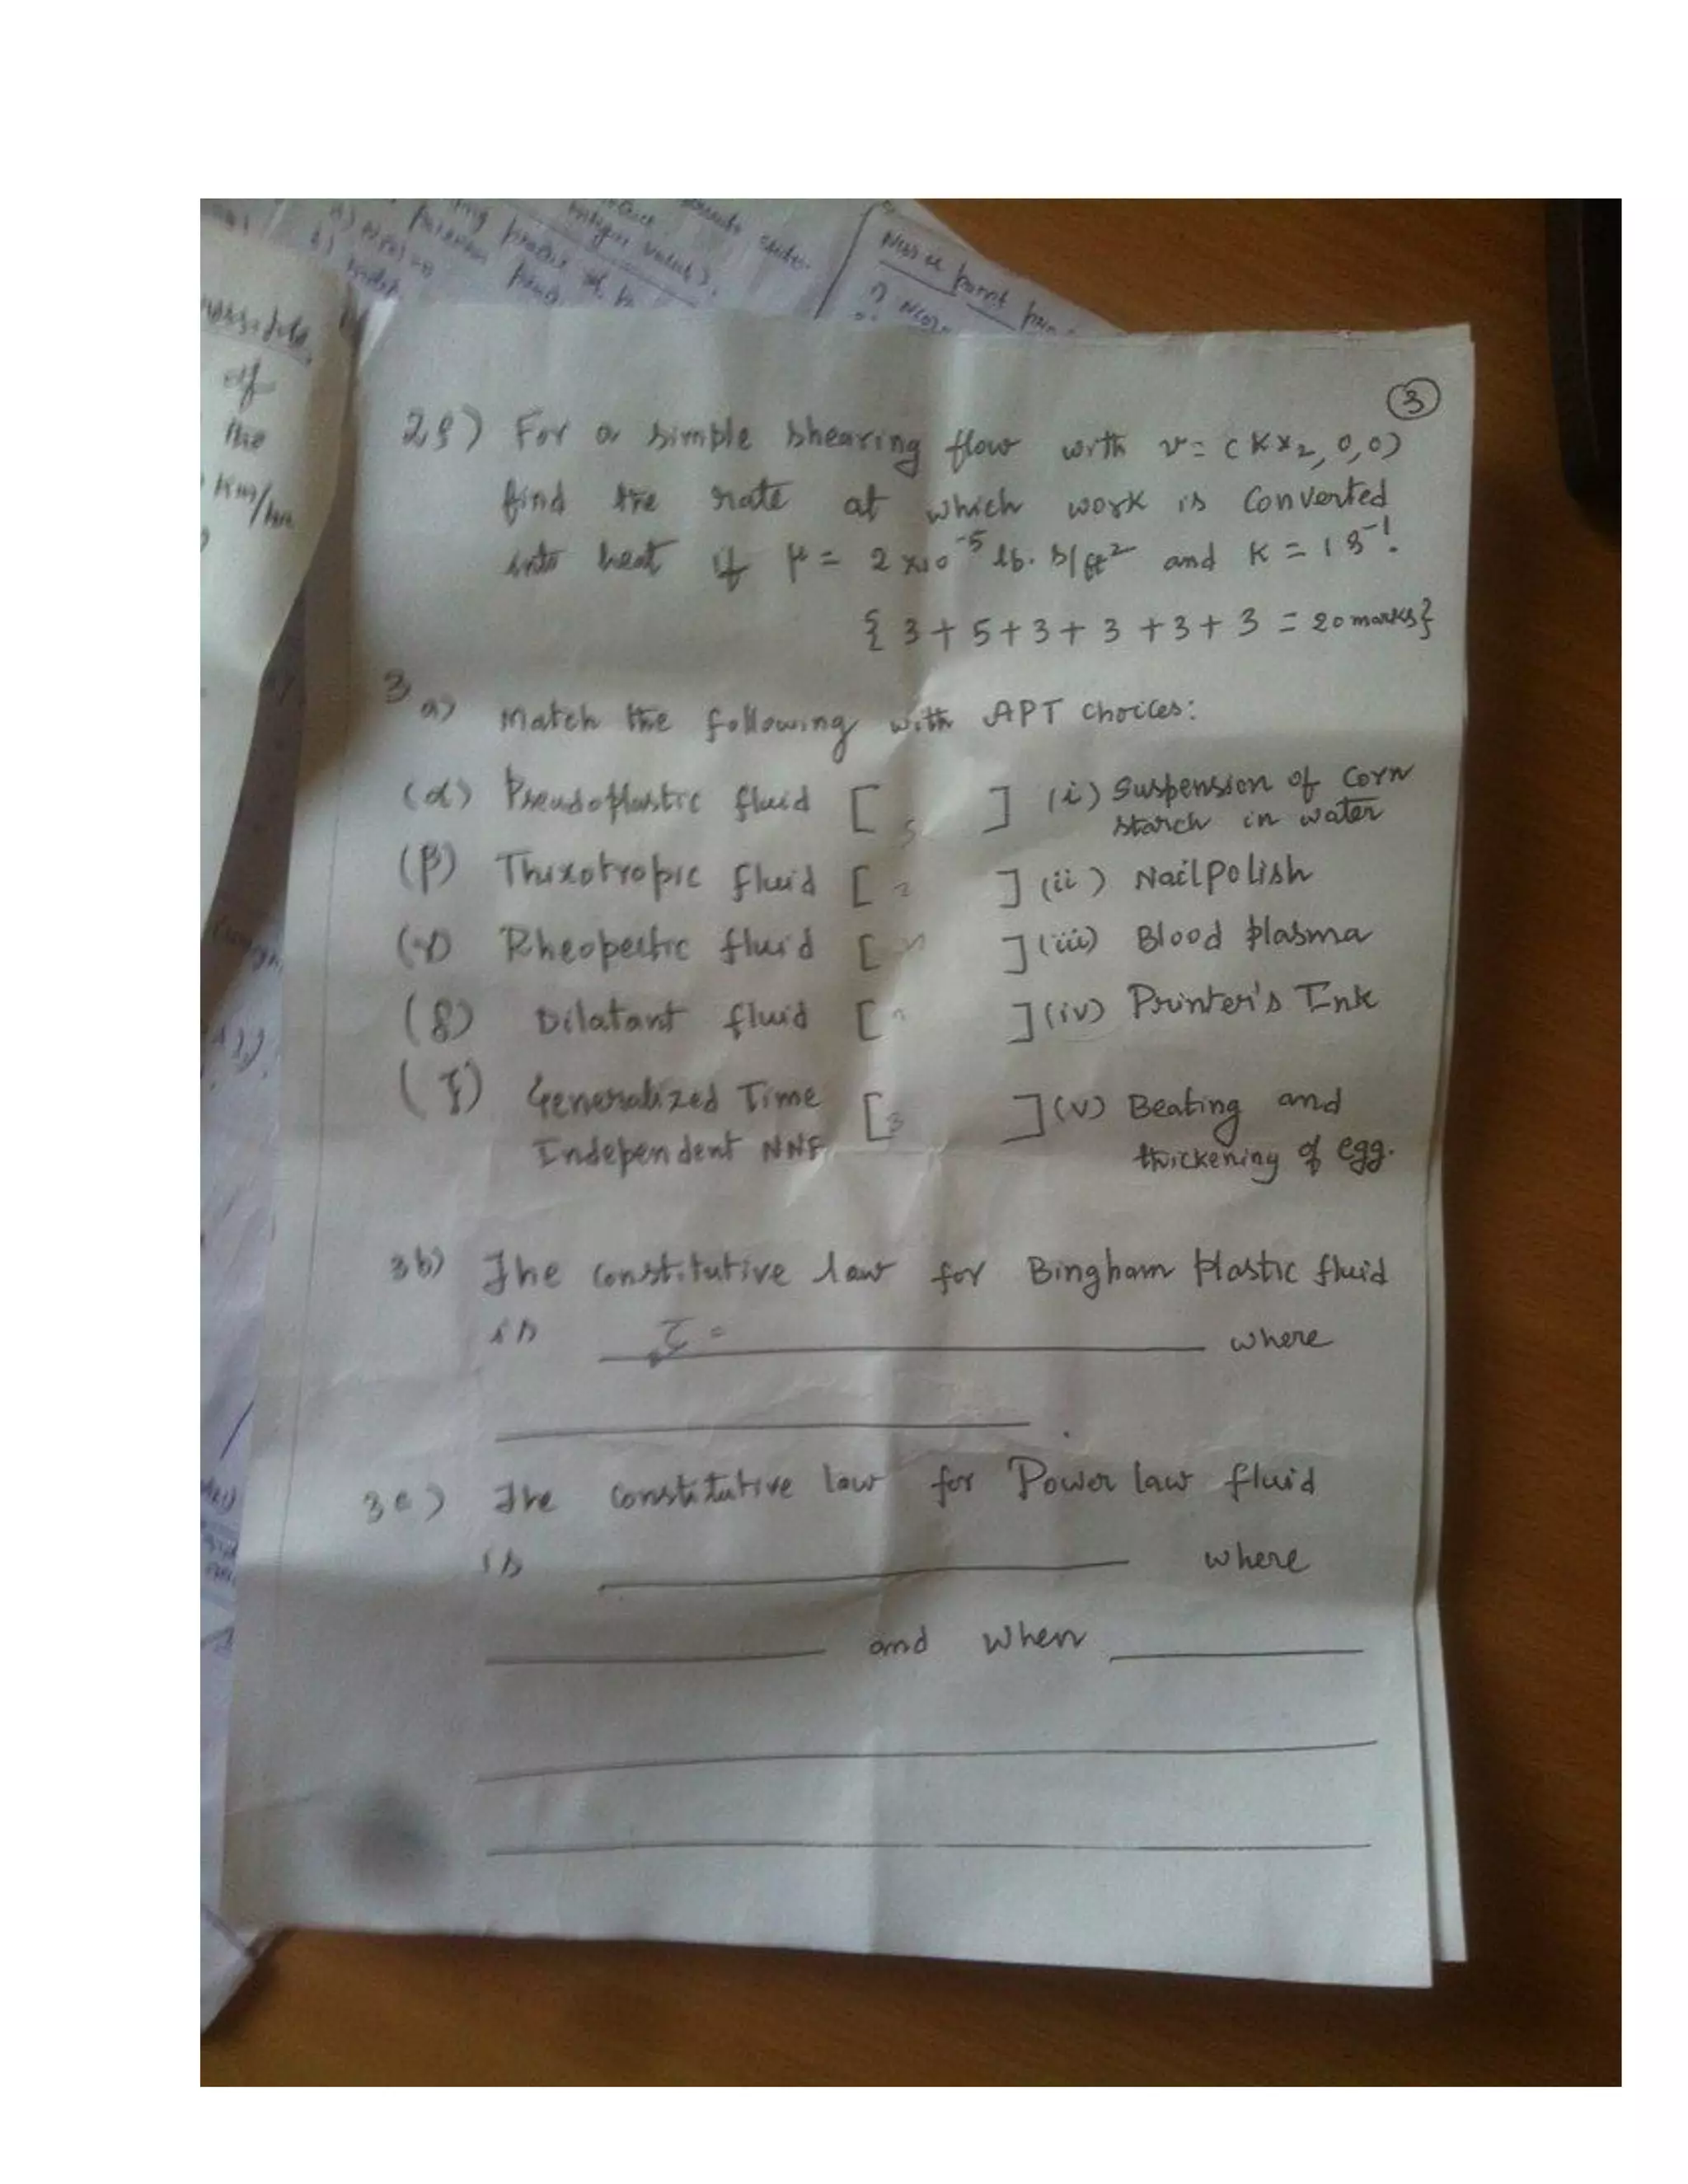 of
the
Km/hr
③
2f) For a simple shearing flow with v = (Kx₂, 0, 0)
find the rate at which work is converted
into heat if μ = 2 x10⁻⁵ lb. s/ft² and K = 1 s⁻¹.
{ 3 + 5 + 3 + 3 + 3 + 3 = 20 marks}
3 a) Match the following with APT choices:
(α) Pseudoplastic fluid [ ] (i) Suspension of Corn
starch in water
(β) Thixotropic fluid [ ] (ii) Nail polish
(γ) Rheopectic fluid [ ] (iii) Blood plasma
(δ) Dilatant fluid [ ] (iv) Printer's Ink
(ξ) Generalized Time [3 ] (v) Beating and
Independent NNF thickening of egg.
3b) The constitutive law for Bingham plastic fluid
is τ = where
3c) The constitutive law for Power law fluid
is where
and when